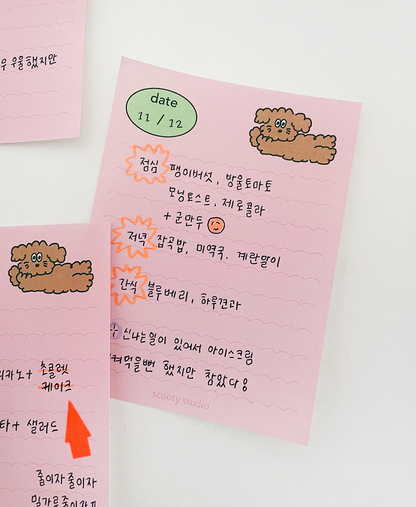 우울했지만
date
11 / 12
점심 팽이버섯, 방울토마토
모닝토스트, 제로콜라
+ 군만두
저녁 잡곡밥, 미역국, 계란말이
간식 블루베리, 하루견과
신나는일이 있어서 아이스크림
먹을뻔 했지만 참았다!
scooty studio
리카노 + 초콜렛
케이크
타 + 샐러드
줄이자 줄이자
밀가루줄이자